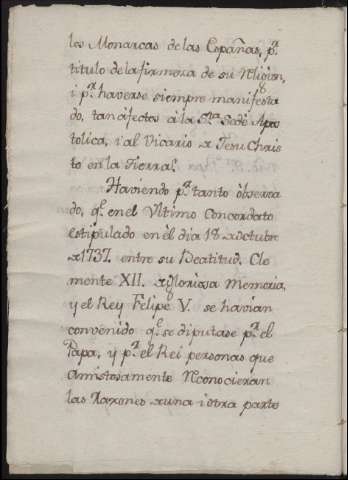 los Monarcas de las Españas, pr.
titulo de la firmeza de su Religion,
i pr. haverse siempre manifesta
do, tan afectos à la Sta. Sede Apos
tolica, i al Vicario de Jesu Chris
to en la Tierra.
Haviendo pr. tanto observa
do, qe. en el Ultimo Concordato
estipulado en él dia 18 de Octubre
de 1737. entre su Beatitud, Cle
mente XII. de Gloriosa Memoria,
y el Rey Felipe V. se havian
convenido qe. se diputase pr. el
Papa, y pr. el Rei personas que
Amistosamente Reconocieran
las Razones de una i otra parte